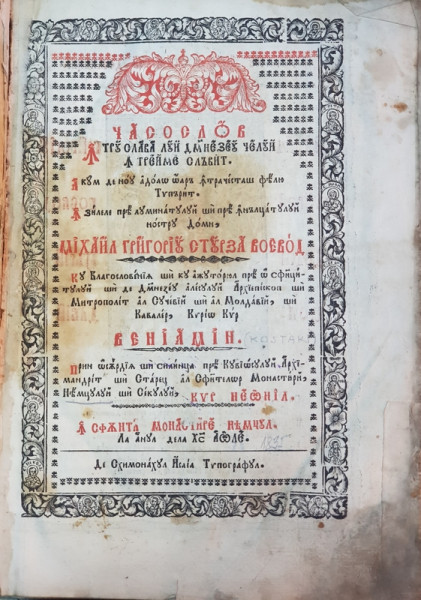 ЧАСОСЛѠВ
Ꙟтрꙋ слава лꙋй Дꙋмнезеꙋ челꙋй
ꙟ трейме слъвит.
Акꙋм де ноꙋ адоаѡ ѡаръ ꙟтрачѣсташ фелю
Типърит.
Ꙟ зилеле прѣ луминатꙋлꙋй ши прѣ ꙟнълцатꙋлꙋй
нострꙋ Домн,
МІХАИЛ ГРИГОРІꙊ СТꙊРЗА ВОЕВОД
Кꙋ Благословѣнія ши кꙋ ажꙋторюл прѣ ѡ сфинци
тꙋлꙋй ши де Дꙋмнезеꙋ алесꙋлꙋй Архіепископ ши
Митрополит ал Сꙋчевій ши ал Молдавій, ши
Кавалер, Кѵріѡ Кѵр
ВЕНІАМИН.
Прин ѡсѫрдія ши силинца прѣ Кꙋвіосꙋлꙋй Архі
мандрит ши Старец ал Сфинтелор Монастирй,
Нѣмцꙋлꙋй ши Секꙋлꙋй, КѴР НЕѠНИЛ.
Ꙟ СФѪНТА МОНАСТИРЕ НѢМЦꙊЛ.
Ла анꙋл дела Хс҃ ҂АѠЛЕ. 1835
Де Схимонахꙋл Исаіа Типографꙋл.